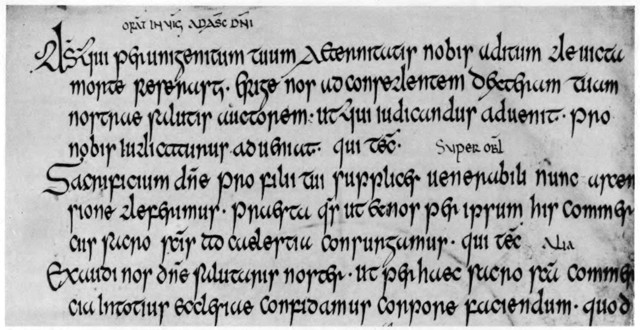 ORAT IN VIG AD ASC DNI
Ds qui per unigenitum tuum aeternitatis nobis aditum devicta
morte reserasti. Erige nos ad consedentem dexteram tuam
nostrae salutis auctorem: ut qui iudicandus advenit. pro
nobis iudicaturus adveniat. qui tec. Super obl
Sacrificium dne pro filii tui supplices venerabili nunc ascen
sione deferimus. Praesta qs ut et nos per ipsum his commer
ciis sacro scis ad caelestia consurgamus. qui tec Alia
Exaudi nos dne salutaris noster. ut per haec sacro sca commer
cia in totius ecclesiae confidamus corpore faciendum. quod